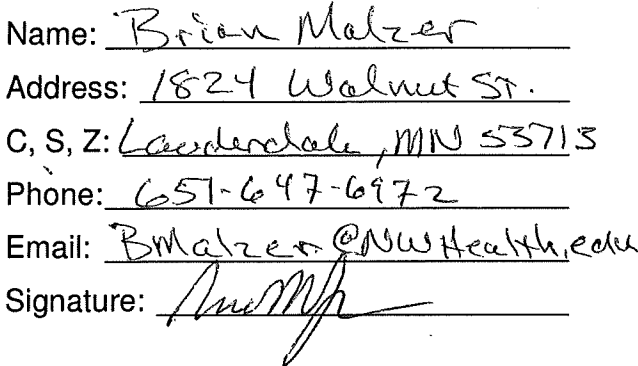 Name: Brian Malzer
Address: 1824 Walnut St.
C, S, Z: Lauderdale, MN 53713
Phone: 651-647-6972
Email: BMalzer@NWHealth.edu
Signature: